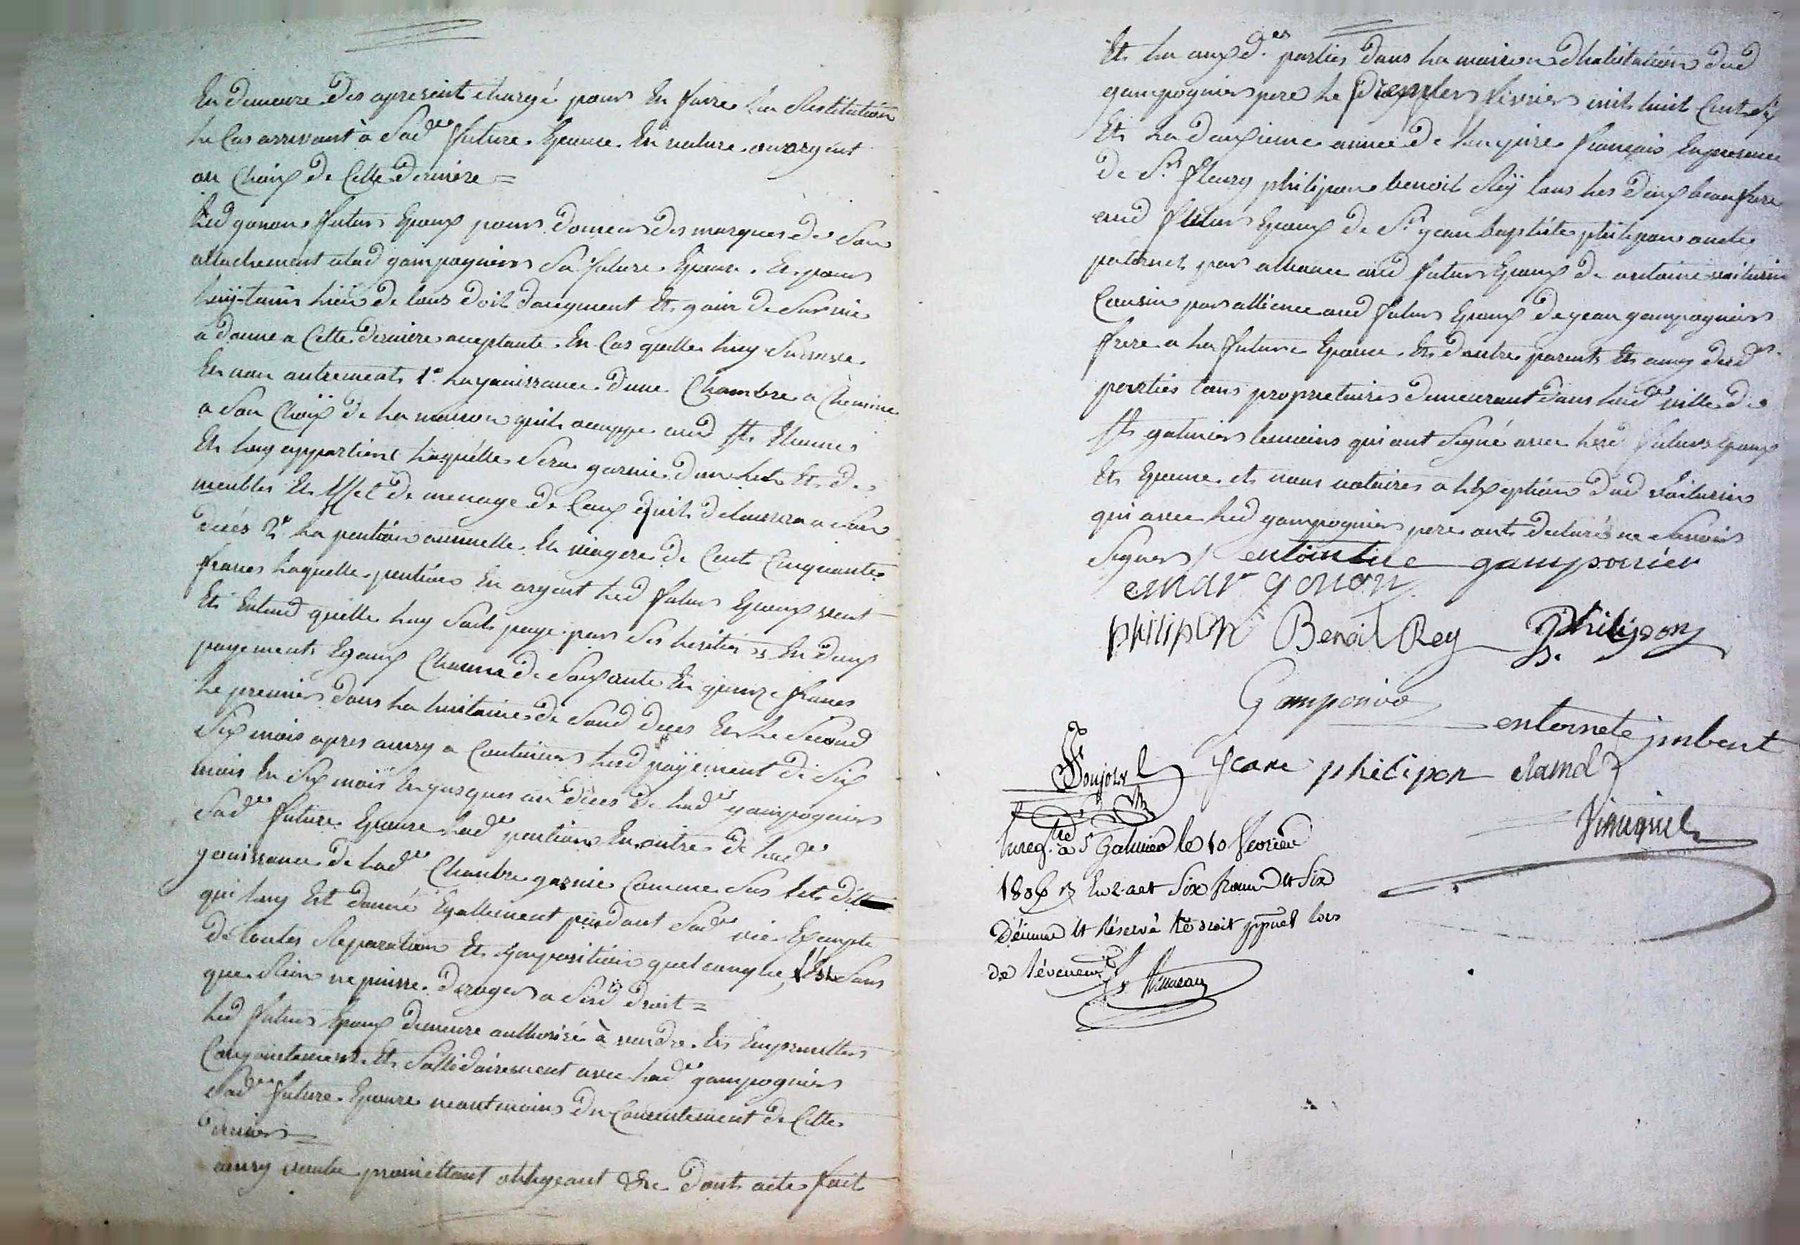 En demeure des apresent chargé pour En faire La Restitution
Le Cas arrivant à Sad.e future Epouse En nature ou argent
au Choix de Cette derniere =
Led gonon futur Epoux pour donner des marques de Son
attachement alad gampognier Sa future Epouse Et pour
luy tenir lieu de tous doit daugment Et gain de Survie
a donné a Cette derniere aceptante En Cas quelle luy Survive
Et non autrement 1.o La jouissance d'une Chambre a Cheminé
a Son Choix de La maison quil ocuppe aud St Etienne
Et luy appartient Laquelle Sera garnie dun Lit Et de
meubles Et Effet de menage de Ceux quil delaissera a Son
deces 2.o La pention annuelle Et viagere de Cent Cinquante
francs Laquelle pention En argent Led futur Epoux veut
Et Entend quelle luy Soit paye par Ses heritiers En deux
payements Egaux Chacun de Soixante Et quinze francs
Le premier dans La huitaine de Soud deces Et Le Second
Six mois apres ainsy a Continuer Led payement de Six
mois En Six mois Jusques au deces de Lad.e gampognier
Sad.e future Epouse Lad.e pention En outre de Lad.e
jouissance de Lad.e Chambre garnie Comme Sus Est dit
qui luy Est donné Egallement pendant Sad.e vie Exempte
de toutes Reparation Et Imposition quelconque, Sans
que Rien ne puisse deroger a Sesd droit =
Led futur Epoux demeure authorisé à vendre Et Emprunter
Conjointement Et Sollidairement avec Lad.e gampognier
Sad.e future Epouse neantmoins du Consentement de Cette
derniere =
ainsy voulu promettant obligeant &c Dont acte fait
Et Lu aux d.es parties dans La maison Dhabitation dud
gampognier pere Le fevrier mil huit Cent Six
Et La deuxieme année de Lempire français En presence
de S.r fleury philipon benoit Rey tous Les deux beau frere
aud futur Epoux de S.r jean baptiste philipon oncle
paternel par alliance aud futur Epoux de antoine voiturin
Cousin par alliance aud futur Epoux de jean gampognier
frere a La future Epouse Et dautre parents Et amy desd.
parties tous proprietaires demeurant dans Lad.e ville de
St galmier temoins qui ont Signé avec Led futur Epoux
Et Epouse et nous notaires a Lexeption dud voiturin
qui avec Led gampognier pere ont declaré ne Savoir
Signer / entoinete gamponier
gonon
philipon Benoit Rey Philipon
Gamponier
entoinete jmbert
Poujols Jeane philipon
Enreg.tré à S.t Galmier le 10 fevrier
1806 Six francs et Six
Décime et réservé le droit lors
de l'évenem.t